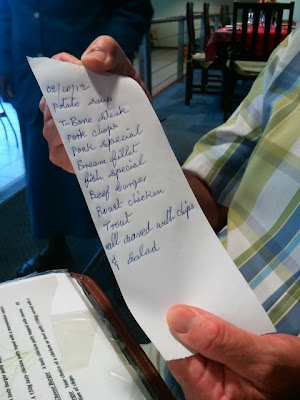 02/10/12
Potato soup
T-Bone steak
Pork chops
Pork special
Bream fillet
Fish special
Beef burger
Roast chicken
Trout
all served with chips
& Salad